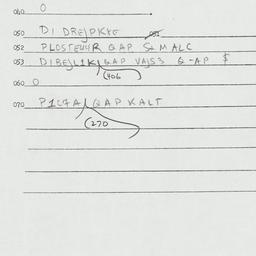 040 O
050 DI DREJPKYE 051
052 PLOSTEUYR GAP S&MALC
053 DIBEJLIK GAP VAJS3 G-AP $
(406
060 O
070 P1C7A GAP KALT
(270